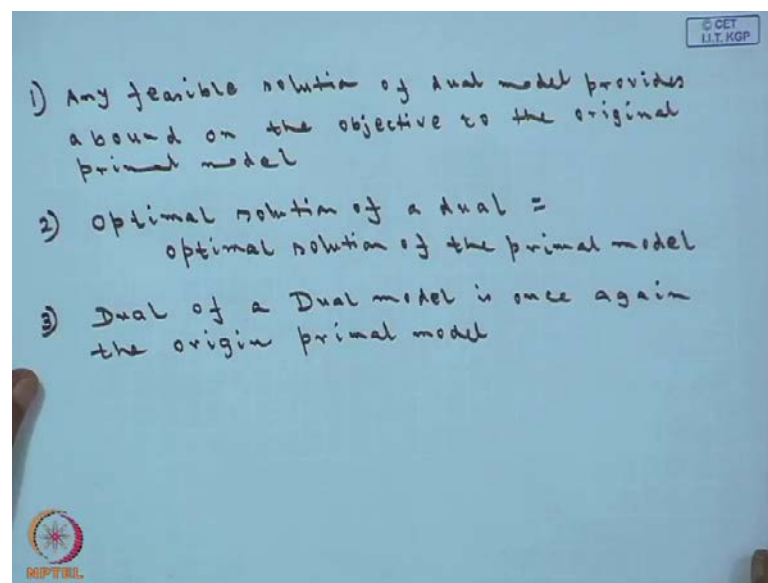 © CET
I.I.T. KGP
1) Any feasible solution of dual model provides
a bound on the objective to the original
primal model
2) Optimal solution of a dual =
optimal solution of the primal model
3) Dual of a Dual model is once again
the origin primal model
NPTEL